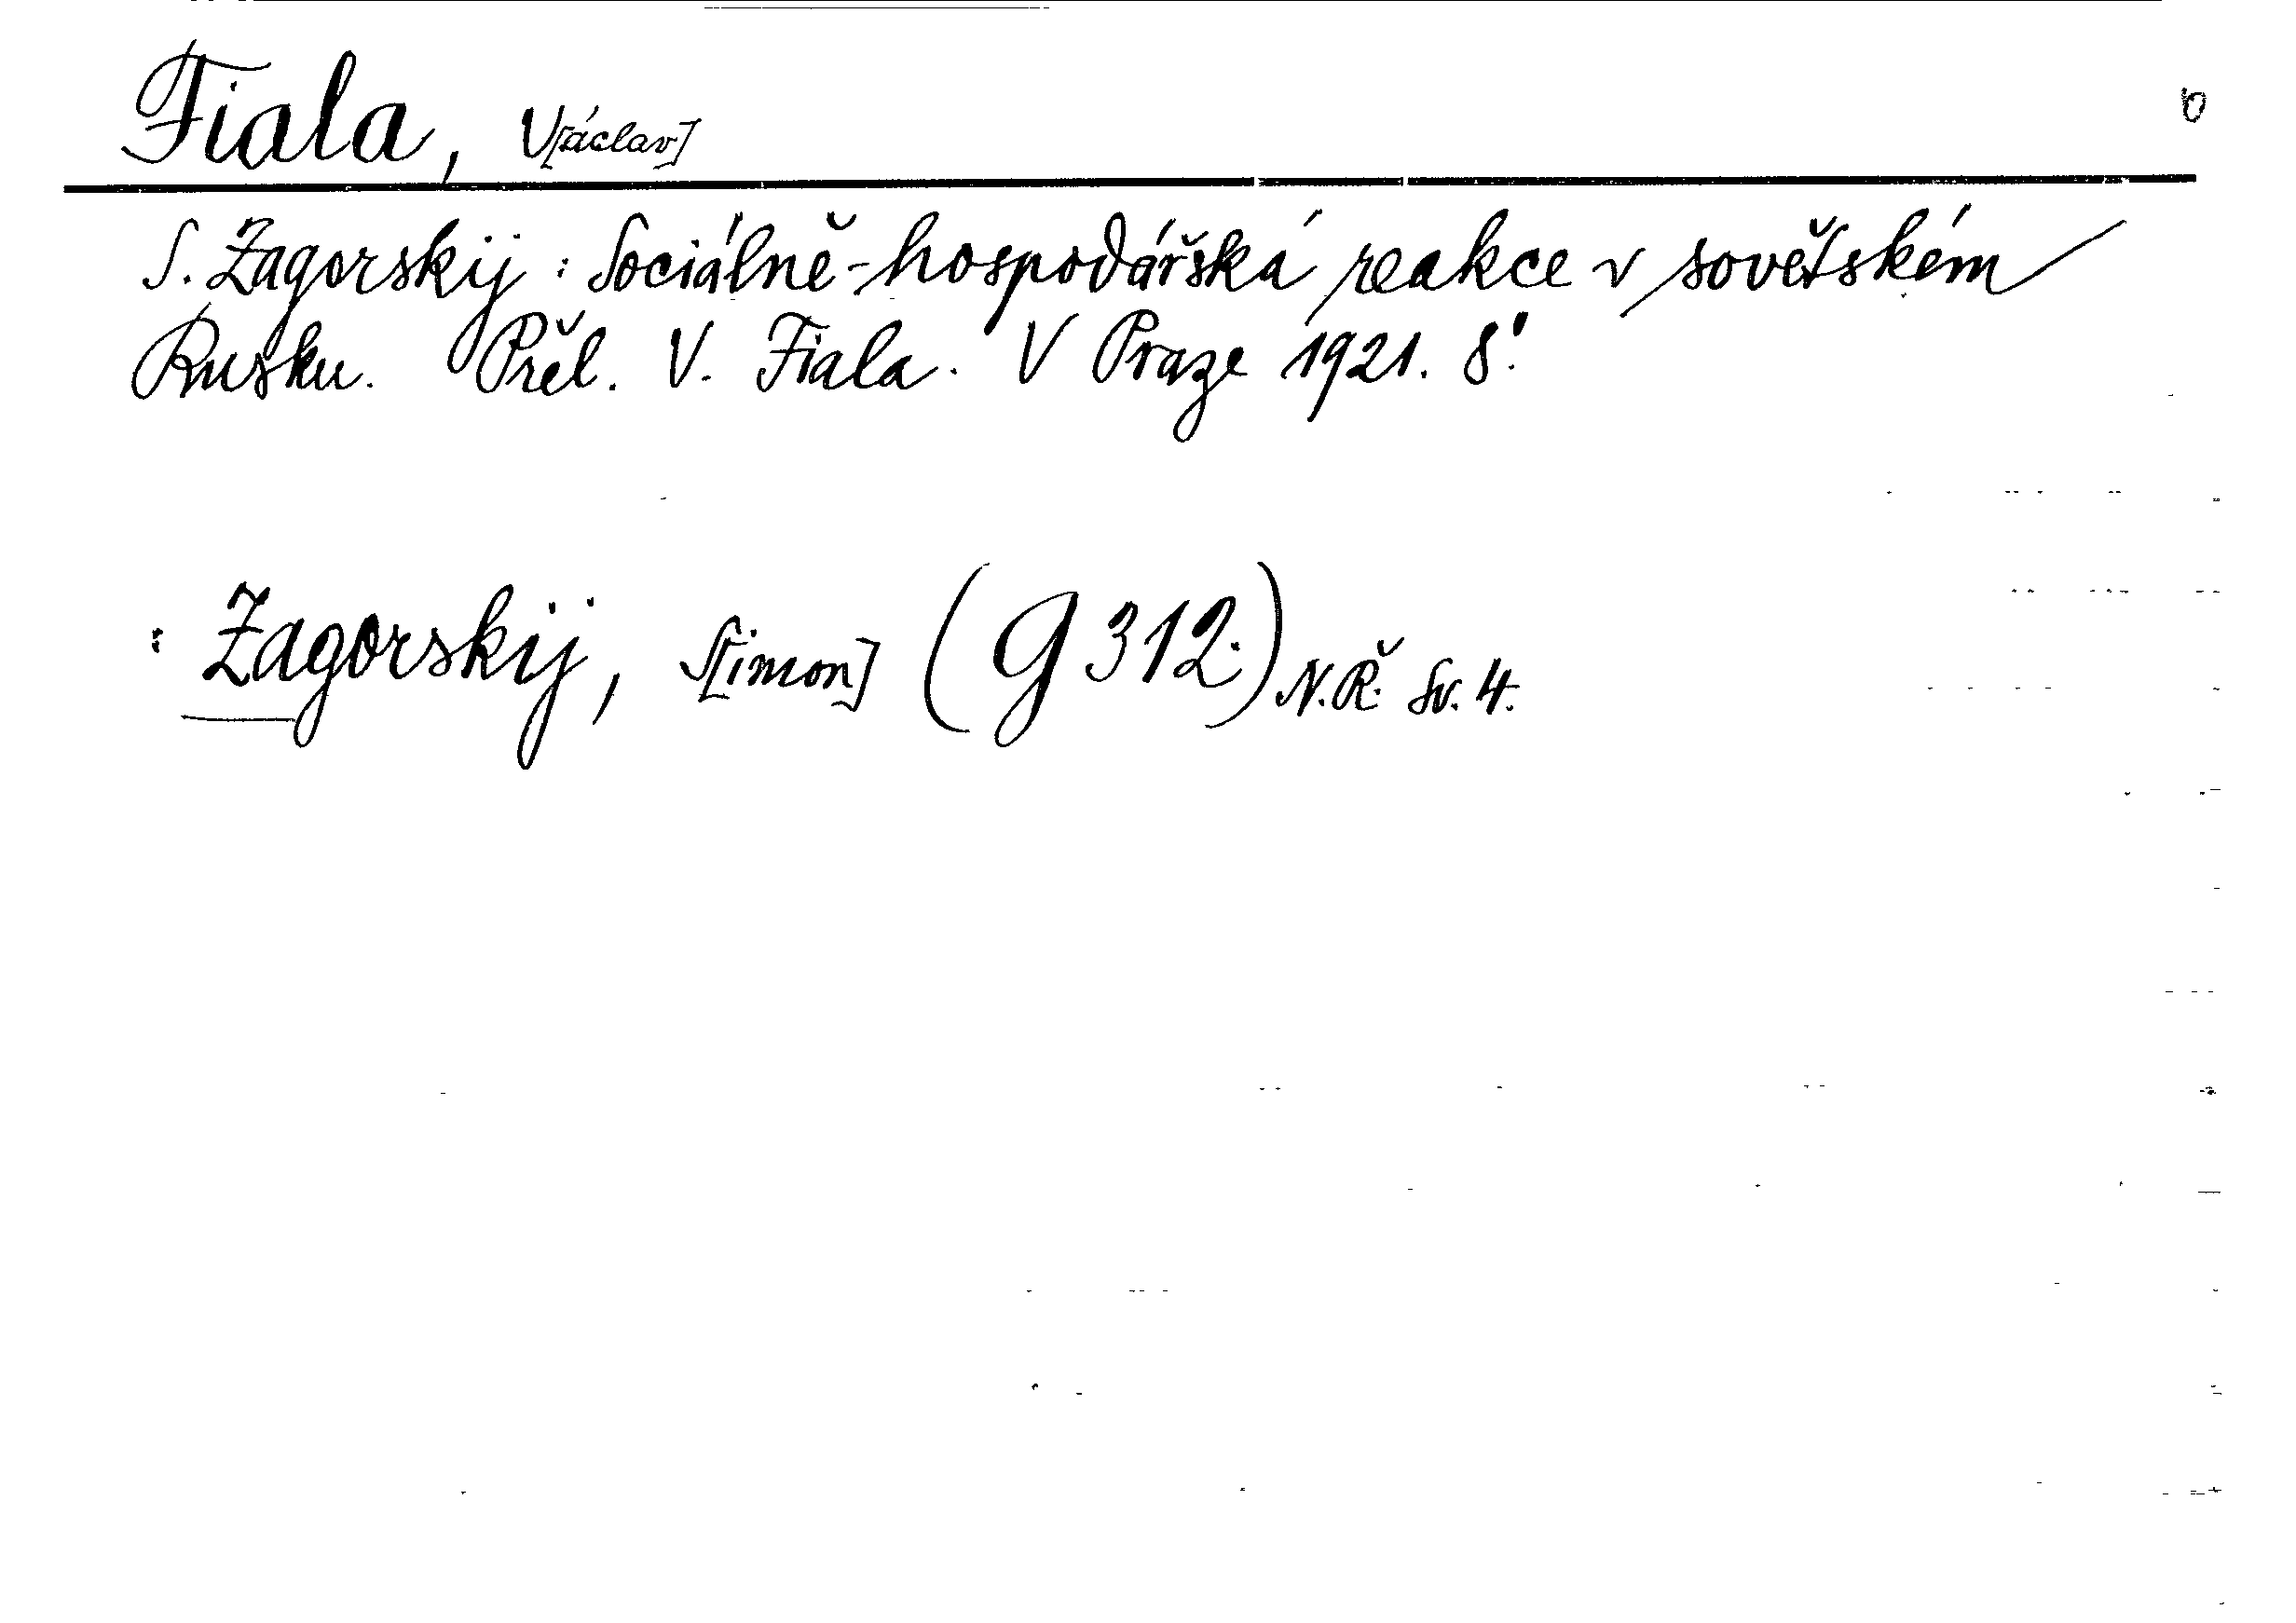 Fiala, V[áclav]
S. Zagorskij : Sociálně-hospodářská reakce v sovětském
Rusku. Přel. V. Fiala. V Praze 1921. 8°.
: Zagorskij, S[imon] (G 312.) N.Ř. Sv. 4.